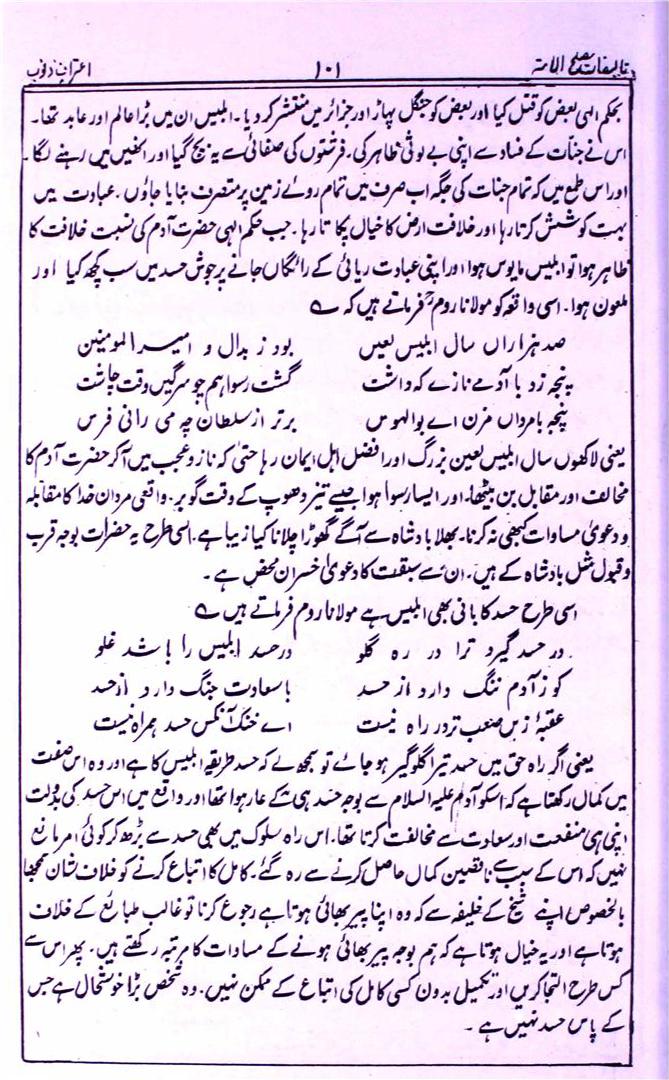 تالیفات مصلح الامۃ ۱۰۱ اعتراف ذنوب
بحکم الٰہی بعض کو قتل کیا اور بعض کو جنگل پہاڑ اور جزائر میں منتشر کر دیا۔ ابلیس ان میں بڑا عالم اور عابد تھا۔
اس نے جنّات کے فساد سے اپنی بے لوثی ظاہر کی۔ فرشتوں کی صفائی سے یہ بچ گیا اور انھیں میں رہنے لگا۔
اور اس طمع میں کہ تمام جنات کی جگہ اب صرف میں تمام روئے زمین پر متصرف بنایا جاؤں۔ عبادت میں
بہت کوشش کرتا رہا اور خلافت ارض کا خیال پکاتا رہا۔ جب حکم الٰہی حضرت آدم کی نسبت خلافت کا
ظاہر ہوا تو ابلیس مایوس ہوا اور اپنی عبادت ریائی کے رائگاں جانے پر جوش حسد میں سب کچھ کیا اور
ملعون ہوا۔ اسی واقعہ کو مولانا رومؒ فرماتے ہیں کہ ؎
صد ہزاراں سال ابلیس لعین بود ز بدال و امیر المومنین
پنجہ زد با آدمے نازے کہ داشت گشت رسوا ہم چو سرگیں وقت چاشت
پنجہ با مرداں مزن اے بوالہوس برتر از سلطان چہ می رانی فرس
یعنی لاکھوں سال ابلیس لعین بزرگ اور افضل اہل ایمان رہا حتی کہ ناز و عجب میں آکر حضرت آدم کا
مخالف اور مقابل بن بیٹھا۔ اور ایسا رسوا ہوا جیسے تیز دھوپ کے وقت گوبر۔ واقعی مردان خدا کا مقابلہ
و دعویٰ مساوات کبھی نہ کرنا۔ بھلا بادشاہ سے آگے گھوڑا چلانا کیا زیبا ہے۔ اسی طرح یہ حضرات بوجہ قرب
و قبول مثل بادشاہ کے ہیں۔ ان سے سبقت کا دعویٰ خسران محض ہے۔
اسی طرح حسد کا بانی بھی ابلیس ہے مولانا روم فرماتے ہیں ؎
در حسد گیرد ترا در رہ گلو در حسد ابلیس را باشد غلو
کو ز آدم ننگ دارد از حسد با سعادت جنگ دارد از حسد
عقبۂ زیں صعب تر در راہ نیست اے خنک آنکس حسد ہمراہ نیست
یعنی اگر راہ حق میں حسد تیرا گلوگیر ہو جائے تو سمجھ لے کہ حسد طریقہ ابلیس کا ہے اور وہ اس صفت
میں کمال رکھتا ہے کہ اسکو آدم علیہ السلام سے بوجہ حسد ہی کے عار ہوا تھا اور واقع میں اس حسد کی بدولت
اپنی ہی منفعت اور سعادت سے مخالفت کرتا تھا۔ اس راہ سلوک میں بھی حسد سے بڑھ کر کوئی امر مانع
نہیں کہ اس کے سبب سے ناقصین کمال حاصل کرنے سے رہ گئے۔ کامل کا اتباع کرنے کو خلاف شان سمجھا
بالخصوص اپنے شیخ کے خلیفہ سے کہ وہ اپنا پیر بھائی ہوتا ہے رجوع کرنا تو غالب طبائع کے خلاف
ہوتا ہے اور یہ خیال ہوتا ہے کہ ہم بوجہ پیر بھائی ہونے کے مساوات کا مرتبہ رکھتے ہیں۔ پھر اس سے
کس طرح التجا کریں اور تکمیل بدون کسی کامل کی اتباع کے ممکن نہیں۔ وہ شخص بڑا خوشحال ہے جس
کے پاس حسد نہیں ہے۔